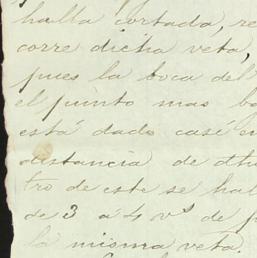 halla cortada, re
corre dicha veta,
pues la boca del
el punto mas ba
está dado casi en
distancia de dhu
tro de este se hal
de 3 á 4 vs de p
la misma veta.